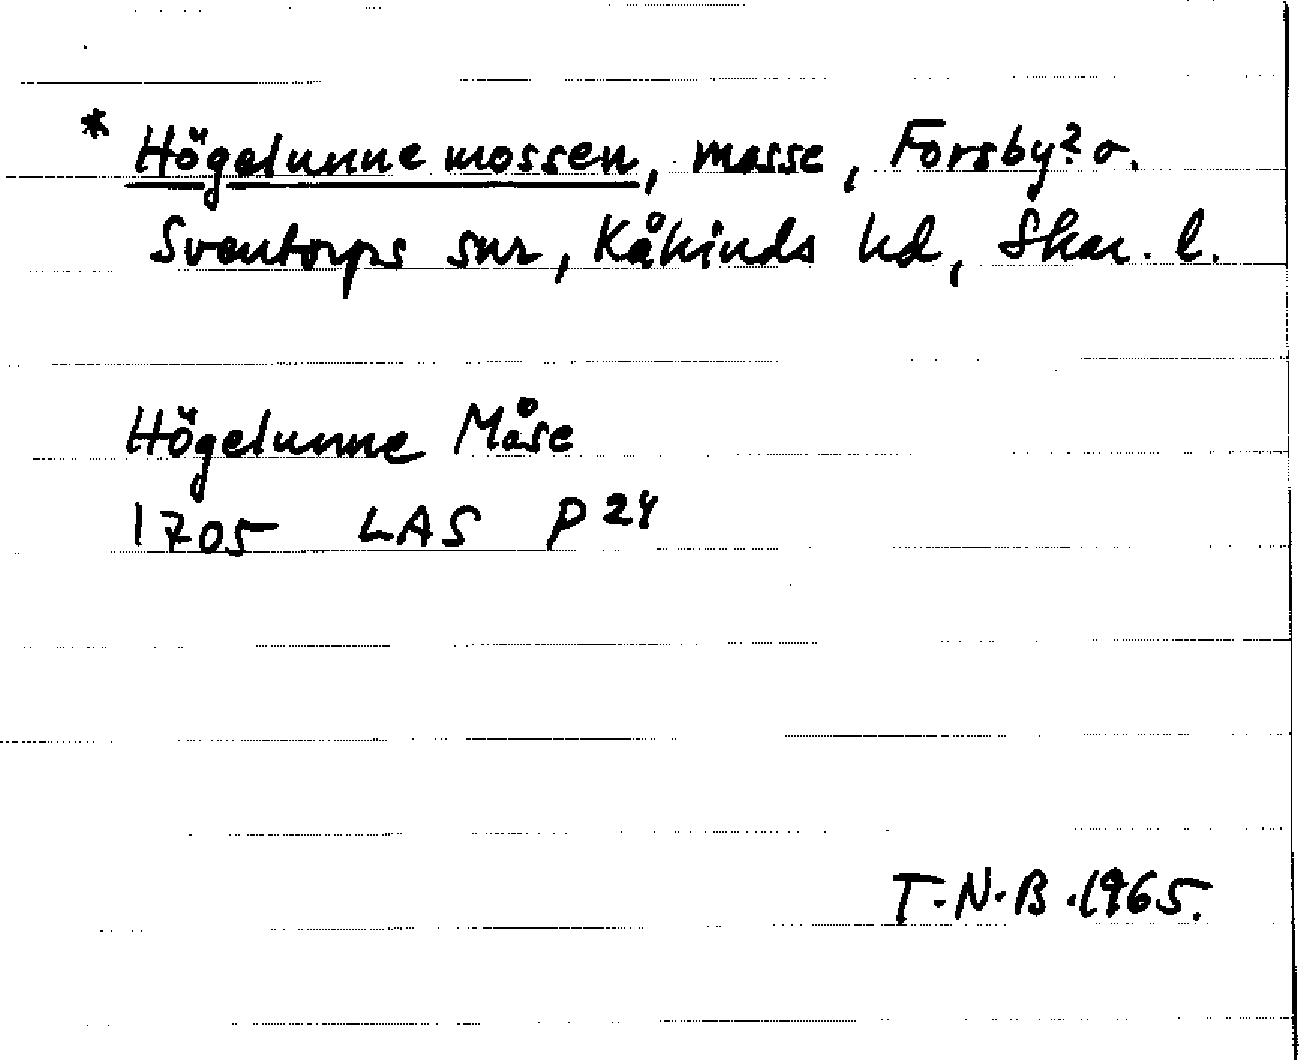 * Högelunne mossen, mosse, Forsby? o.
Sventorps snr, Kåkinds hd, Skar. l.
Högelunne Måse
1705 LAS P 24
T.N.B. 1965.